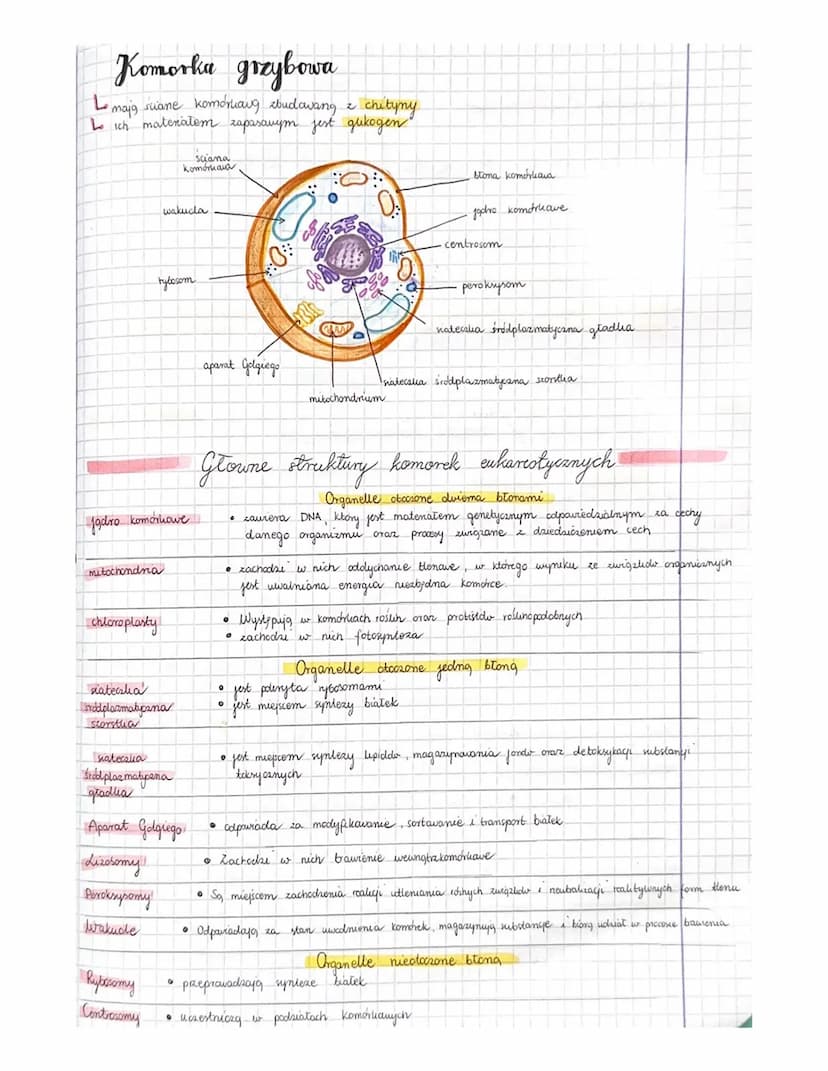 Komorka grzybowa
mają ściane komórkową zbudowaną z chityny
ich materiałem zapasowym jest glikogen
ściana
komórkowa
błona komórkowa
wakuola
jądro komórkowe
centrosom
rybosom
peroksysom
siateczka śródplazmatyczna gładka
aparat Golgiego
siateczka śródplazmatyczna szorstka
mitochondrium
Głowne struktury komorek eukariotycznych
Organelle otoczone dwiema błonami
jądro komórkowe
• zawiera DNA, który jest materiałem genetycznym odpowiedzialnym za cechy
danego organizmu oraz procesy związane z dziedziczeniem cech
mitochondria
• zachodzi w nich oddychanie tlenowe, w którego wyniku ze związków organicznych
jest uwalniana energia niezbędna komórce.
chloroplasty
• Występują w komórkach roślin oraz protistów roślinopodobnych
• zachodzi w nich fotosynteza
Organelle otoczone jedną błoną
siateczka
śródplazmatyczna
szorstka
• jest pokryta rybosomami
• jest miejscem syntezy białek
siateczka
śródplazmatyczna
gładka
• jest miejscem syntezy lipidów, magazynowania jonów oraz detoksykacji substancji
toksycznych
Aparat Golgiego
• odpowiada za modyfikowanie, sortowanie i transport białek
Lizosomy
• Zachodzi w nich trawienie wewnątrzkomórkowe
Peroksysomy
• Są miejscem zachodzenia reakcji utleniania różnych związków i neutralizacji reaktywnych form tlenu
Wakuole
• Odpowiadają za stan uwodnienia komórek, magazynują substancje i biorą udział w procesie trawienia
Organelle nieotoczone błoną
Rybosomy
• przeprowadzają synteze białek
Centrosomy
• uczestniczą w podziałach komórkowych